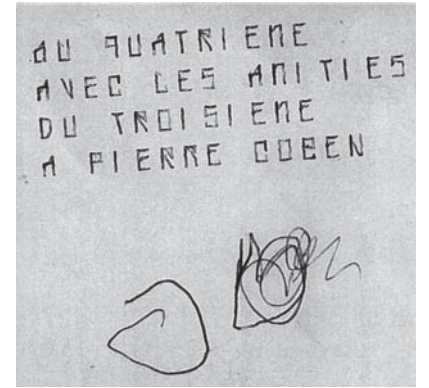 AU QUATRIEME
AVEC LES AMITIES
DU TROISIEME
A PIERRE COBEN